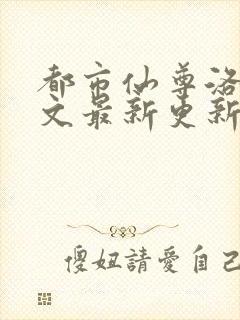 都市仙尊洛
文最新更新
傻妞請愛自己